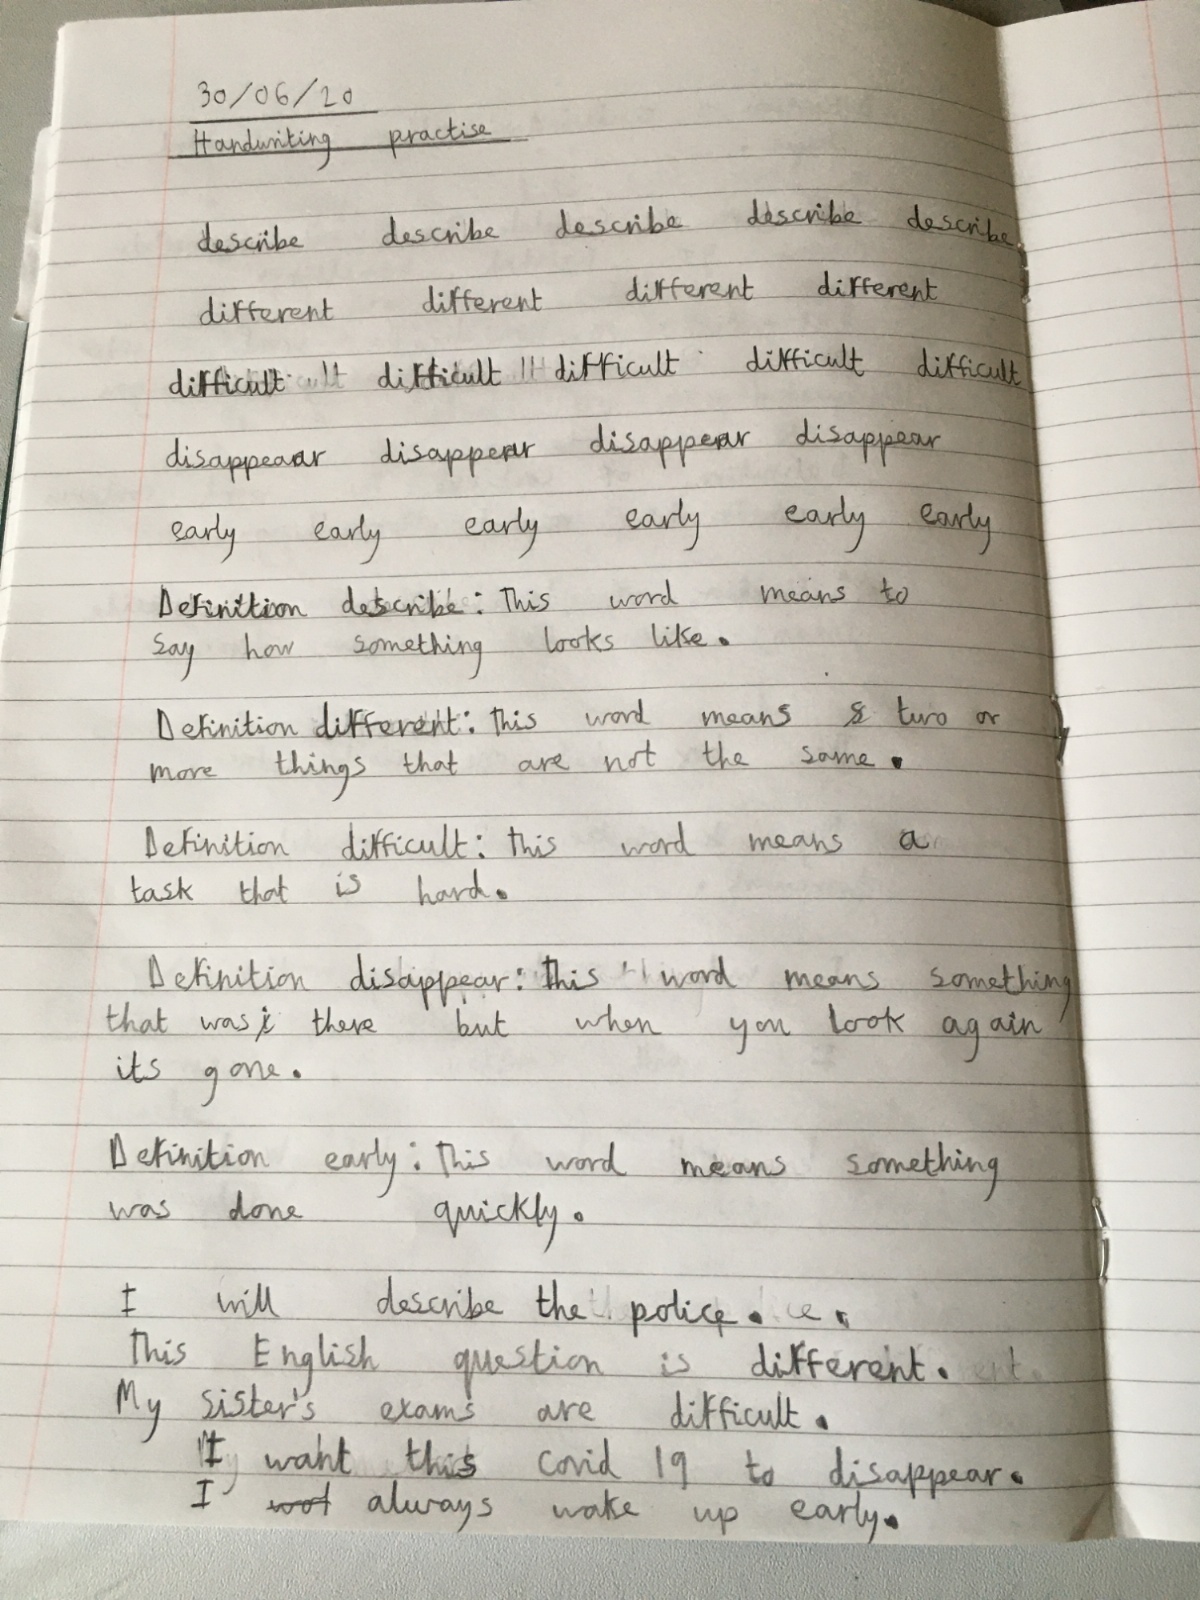 30/06/20
Handwriting practise
describe describe describe describe describe
different different different different
difficult difficult difficult difficult difficult
disappear disappear disappear disappear
early early early early early early
Definition describe: This word means to
say how something looks like.
Definition different: This word means two or
more things that are not the same.
Definition difficult: This word means a
task that is hard.
Definition disappear: This word means something
that was there but when you look again
its gone.
Definition early: This word means something
was done quickly.
I will describe the police.
This English question is different.
My sister's exams are difficult.
I want this covid 19 to disappear.
I always wake up early.